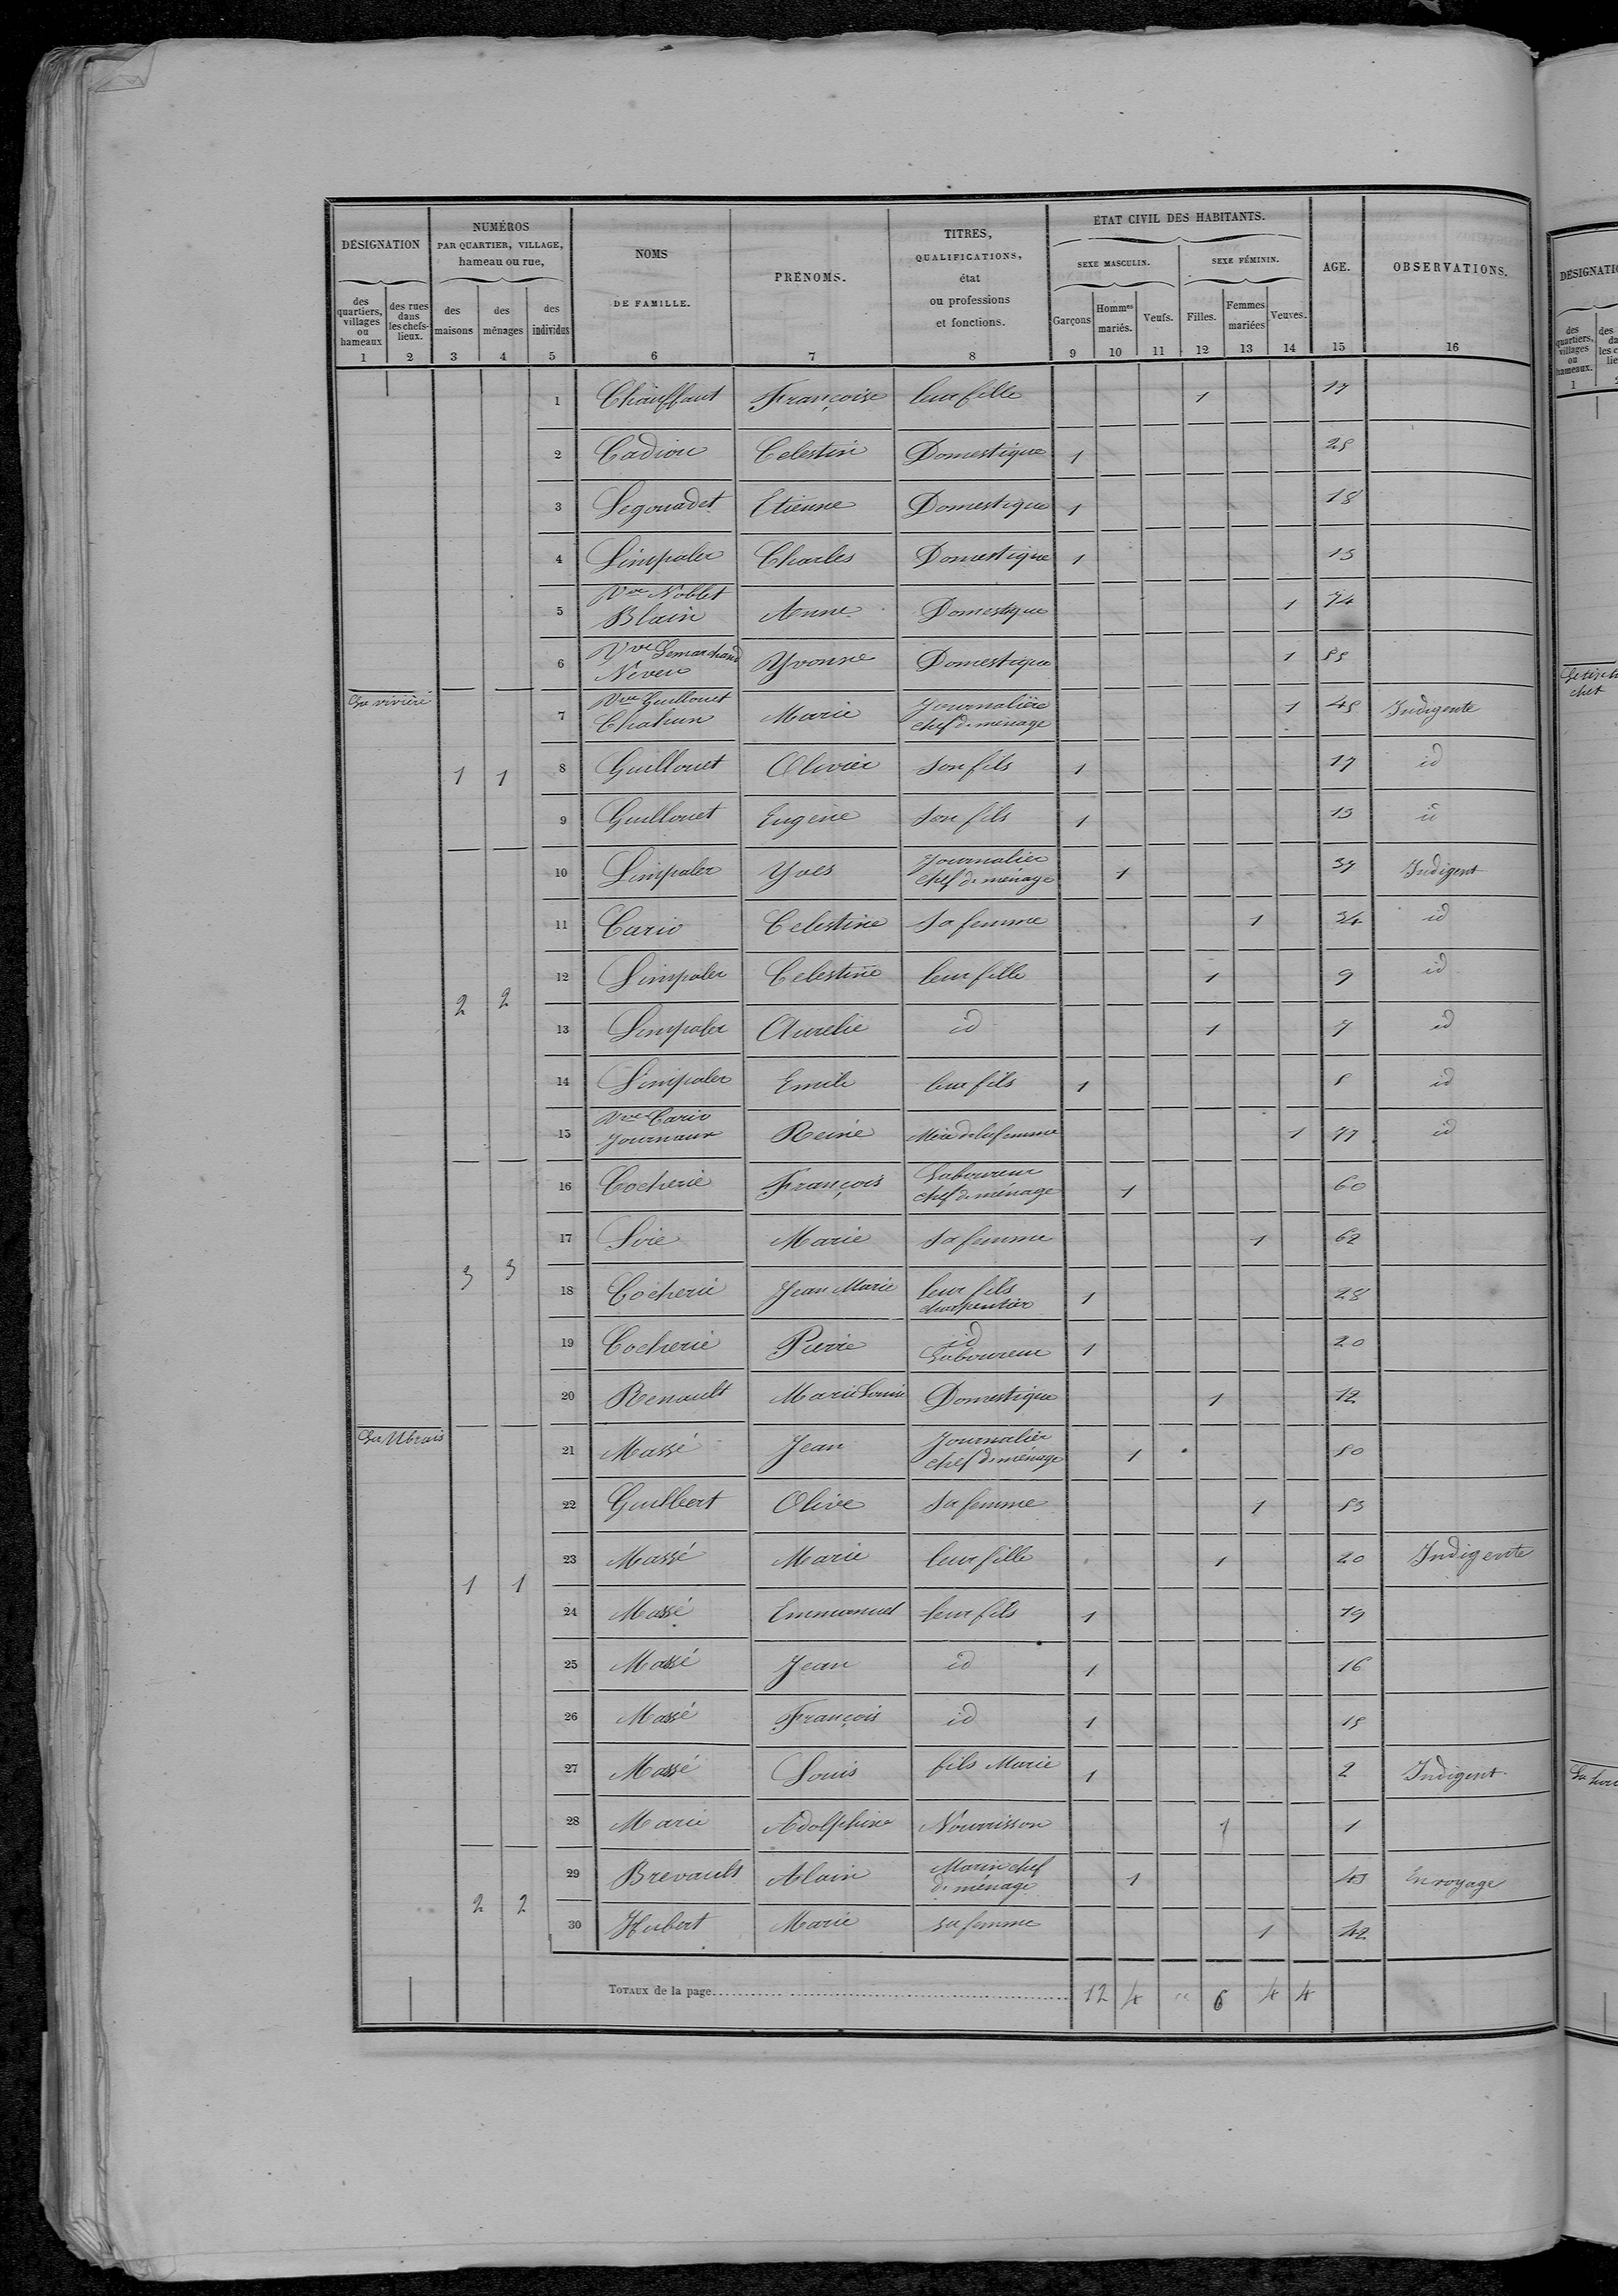 DÉSIGNATION
NUMÉROS
PAR QUARTIER, VILLAGE,
hameau ou rue,
NOMS
DE FAMILLE.
PRÉNOMS.
TITRES,
QUALIFICATIONS,
état
ou professions
et fonctions.
ÉTAT CIVIL DES HABITANTS.
SEXE MASCULIN.
SEXE FÉMININ.
AGE.
OBSERVATIONS.
des quartiers, villages ou hameaux
des rues dans les chefs-lieux.
des maisons
des ménages
des individus
Garçons
Hommes mariés.
Veufs.
Filles.
Femmes mariées
Veuves.
1 2 3 4 5 6 7 8 9 10 11 12 13 14 15 16
1 Chauffaut Françoise leur fille 1 17
2 Cadiou Celestin Domestique 1 25
3 Legouadet Etienne Domestique 1 18
4 Limpaler Charles Domestique 1 15
5 Vve Noblet Blain Anne Domestique 1 74
6 Vve Lemarchand Neveu Yvonne Domestique 1 55
La rivière
7 Vve Guillouet Chahun Marie Journalière chef de ménage 1 45 Indigente
1 1 8 Guillouet Olivier Son fils 1 17 id
9 Guillouet Eugène Son fils 1 13 id
10 Limpaler Yves Journalier chef de ménage 1 37 Indigent
11 Cario Celestine Sa femme 1 34 id
12 Limpaler Celestine leur fille 1 9 id
2 2
13 Limpaler Aurelie id 1 7 id
14 Limpaler Emile leur fils 1 5 id
15 Vve Cario Journaux Reine Mère de la femme 1 77 id
16 Cocherie François Laboureur chef de ménage 1 60
17 Soie Marie Sa femme 1 62
3 3
18 Cocherie Jean Marie leur fils charpentier 1 28
19 Cocherie Pierre id Laboureur 1 20
20 Renault Marie Louise Domestique 1 12
La Ubrais
21 Massé Jean Journalier chef de ménage 1 50
22 Guilbert Olive Sa femme 1 53
23 Massé Marie leur fille 1 20 Indigente
1 1
24 Massé Emmanuel leur fils 1 19
25 Massé Jean id 1 16
26 Massé François id 1 15
27 Massé Louis fils Marie 1 2 Indigent
28 Marie Adolphine Nourrisson 1 1
29 Brevault Alain Marin chef de ménage 1 45 En voyage
2 2
30 Hubert Marie sa femme 1 42
TOTAUX de la page 12 4 " 6 4 4
DÉSIGNATI
des quartiers, villages ou hameaux.
1